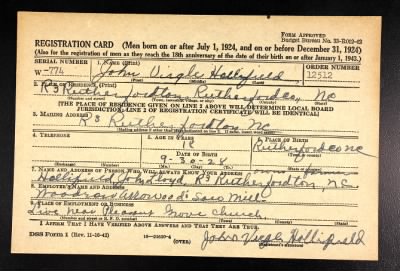 FORM APPROVED
Budget Bureau No. 33-R012-42
REGISTRATION CARD (Men born on or after July 1, 1924, and on or before December 31, 1924)
(Also for the registration of men as they reach the 18th anniversary of the date of their birth on or after January 1, 1943.)
SERIAL NUMBER 1. NAME (Print) ORDER NUMBER
W-774 John Virgle Hollifield 12512
2. PLACE OF RESIDENCE (Print)
R3 Rutherfordton Rutherford Co, NC
[THE PLACE OF RESIDENCE GIVEN ON LINE 2 ABOVE WILL DETERMINE LOCAL BOARD
JURISDICTION; LINE 2 OF REGISTRATION CERTIFICATE WILL BE IDENTICAL]
3. MAILING ADDRESS
R3 Rutherfordton NC
4. TELEPHONE 5. AGE IN YEARS 6. PLACE OF BIRTH
18 Rutherford Co
DATE OF BIRTH
9-30-24 NC
7. NAME AND ADDRESS OF PERSON WHO WILL ALWAYS KNOW YOUR ADDRESS
Hollifield John Lloyd R3 Rutherfordton, NC
8. EMPLOYER'S NAME AND ADDRESS
9. PLACE OF EMPLOYMENT OR BUSINESS
Live near Pleasant Grove Church.
I AFFIRM THAT I HAVE VERIFIED ABOVE ANSWERS AND THAT THEY ARE TRUE.
DSS Form 1 (Rev. 11-16-42) (OVER) John Virgle Hollifield